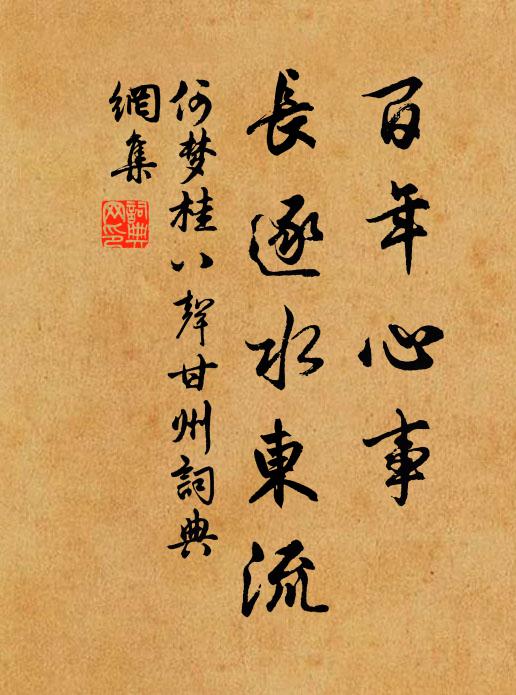 百年心事
長逐水東流
何梦桂八聲甘州詞典
網集
詞典
网印